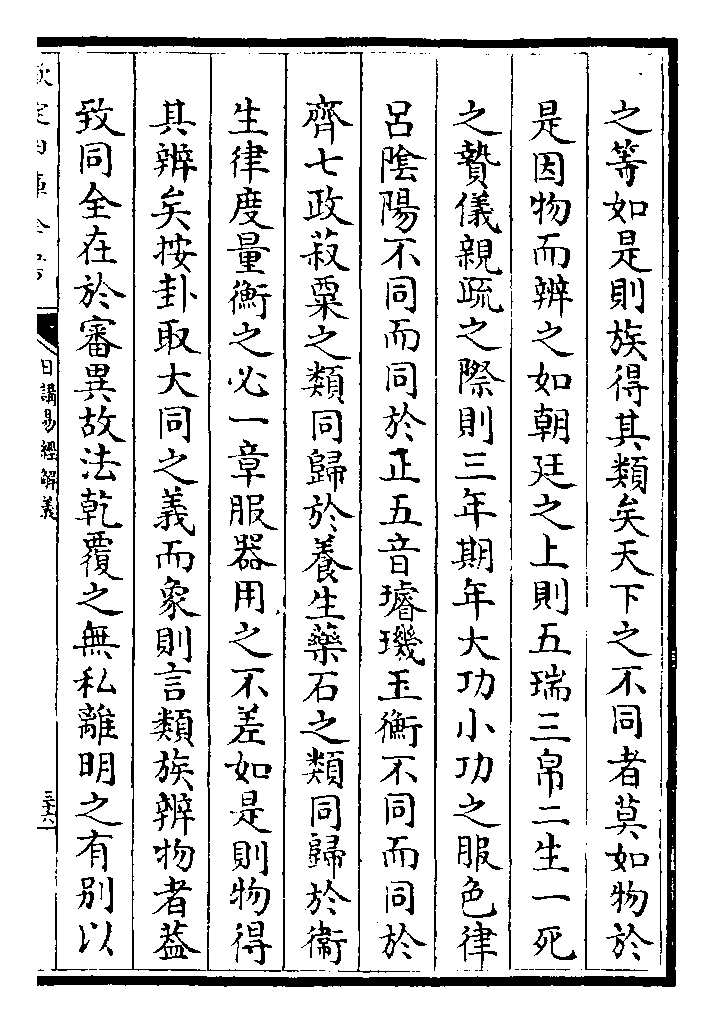 之等如是則族得其類矣天下之不同者莫如物於
是因物而辨之如朝廷之上則五瑞三帛二生一死
之贄儀親疏之際則三年期年大功小功之服色律
呂陰陽不同而同於正五音璿璣玉衡不同而同於
齊七政菽粟之類同歸於養生藥石之類同歸於衞
生律度量衡之必一章服器用之不差如是則物得
其辨矣按卦取大同之義而象則言類族辨物者葢
致同全在於審異故法乾覆之無私離明之有别以
欽定四庫全書
日講易經解義
三十六